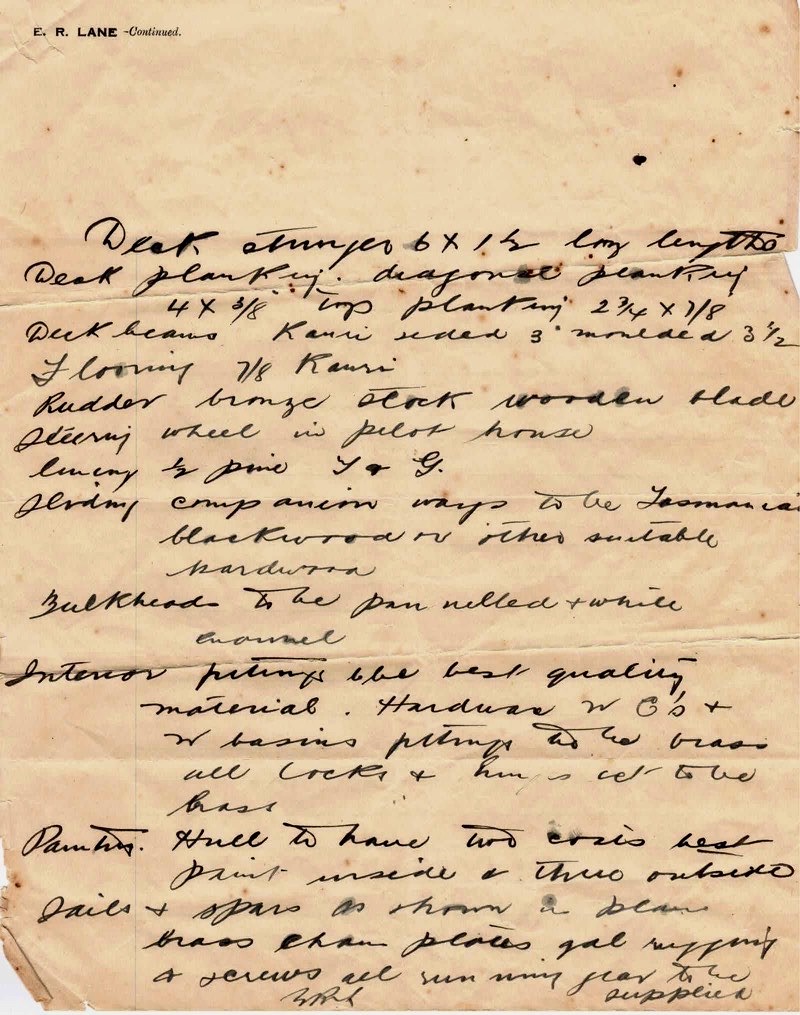 E. R. LANE -Continued.
Deck stringer 6 X 1 1/2 long lengths
Deck planking. diagonal planking
4 X 3/8" Top planking 2 3/4 X 7/8
Deck beams Kauri sided 3" moulded 3 1/2
Flooring 7/8 Kauri
Rudder bronze stock wooden blade
Steering wheel in pilot house
lining 1/2 pine T & G.
Sliding companion ways to be Tasmanian
blackwood or other suitable
hardwood
Bulkheads to be pannelled & white
enamel
Interior fittings the best quality
material. Hardware W C's &
W basins fittings to be brass
all locks & hinges ect to be
brass
Painting. Hull to have two coats best
paint inside & three outside
Sails & spars as shown in plan
brass chain plates gal rigging
& screws all running gear to be
supplied